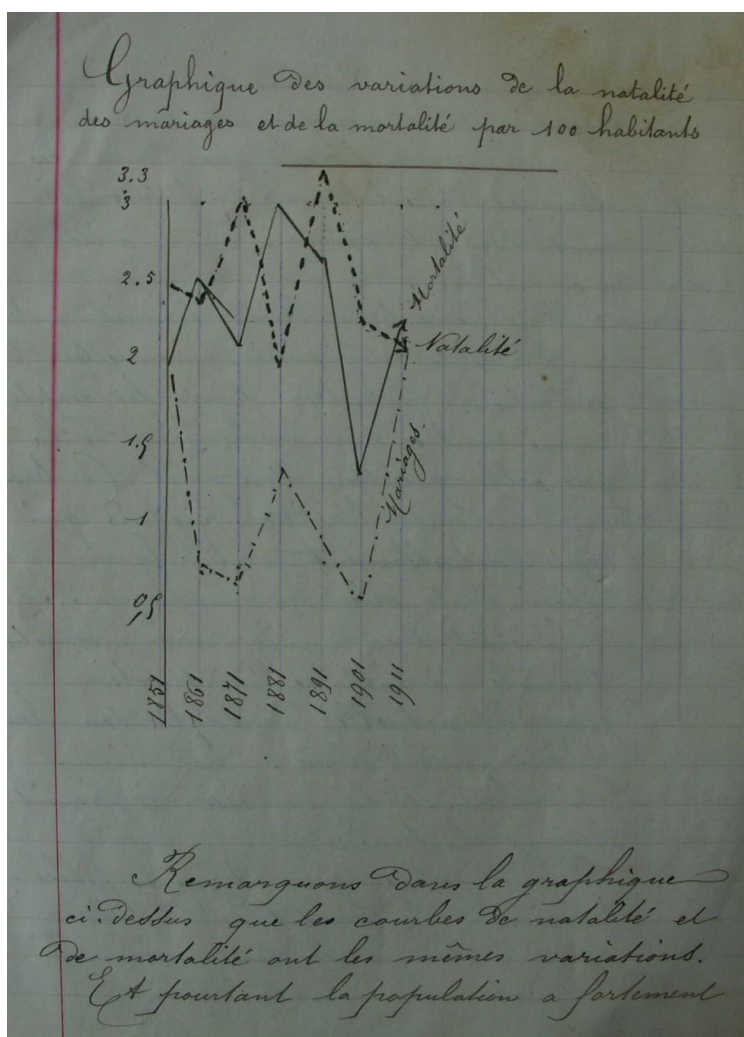 Graphique des variations de la natalité
des mariages et de la mortalité par 100 habitants
3.3
3
2.5
2
1.5
1
0,5
Mortalité
Natalité
Mariages.
1851
1861
1871
1881
1891
1901
1911
Remarquons dans la graphique
ci-dessus que les courbes de natalité et
de mortalité ont les mêmes variations.
Et pourtant la population a fortement